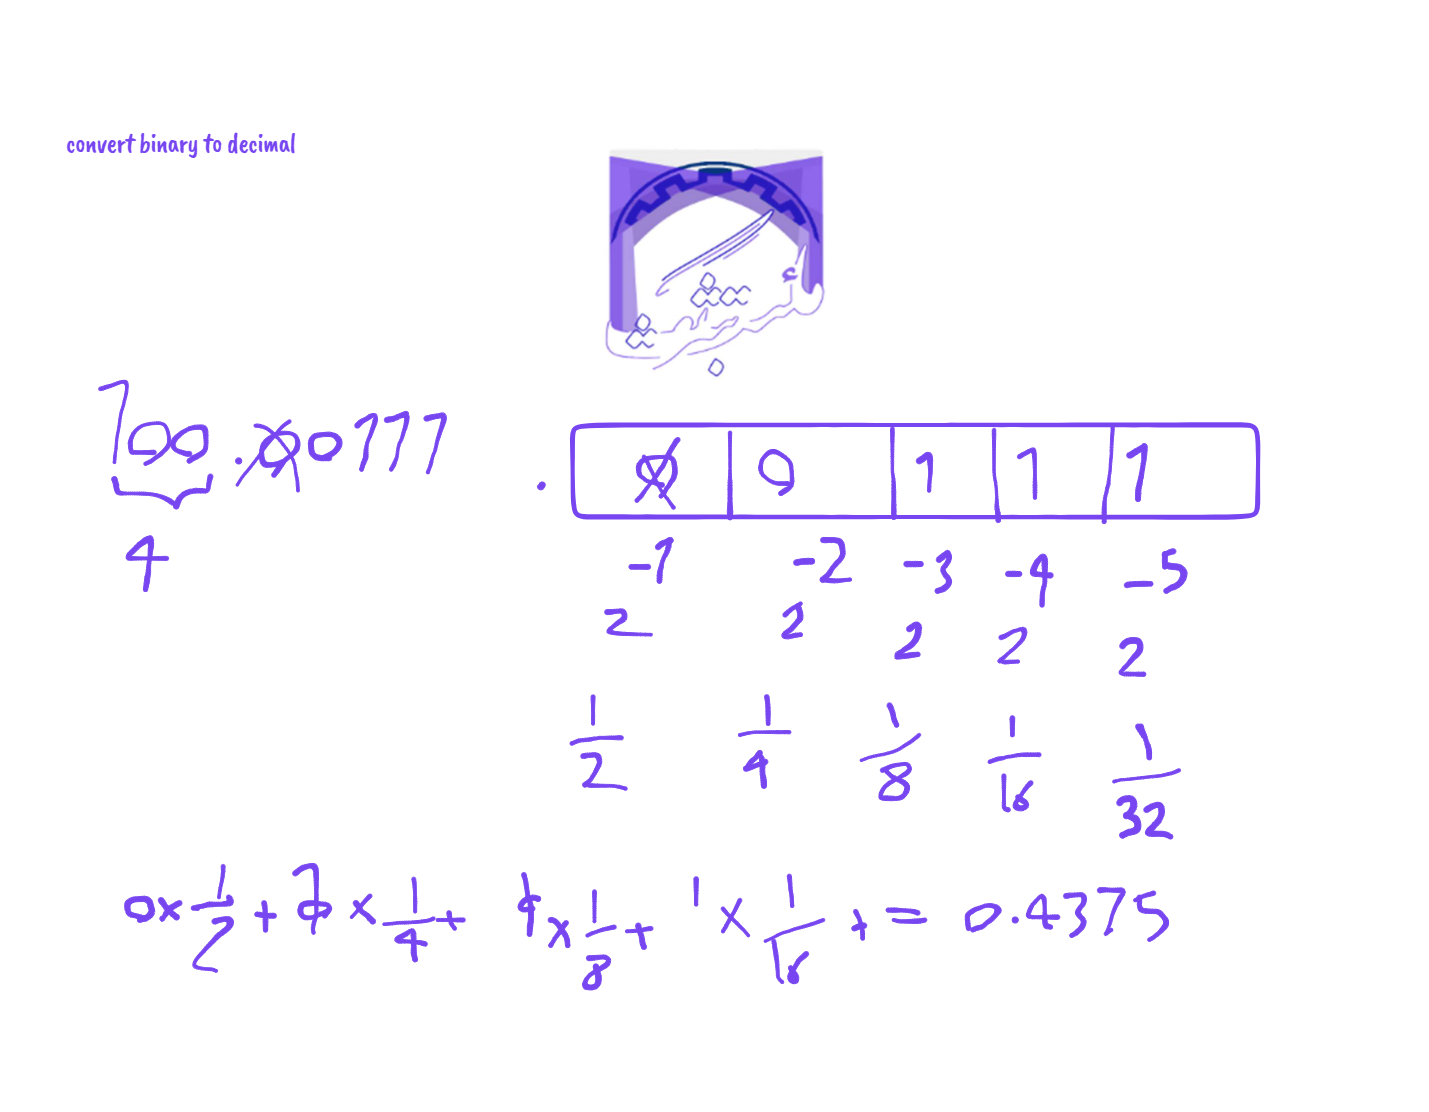 convert binary to decimal
100 . 0 0 1 1 1
. 0 0 1 1 1
4
-1 -2 -3 -4 -5
2 2 2 2 2
1/2 1/4 1/8 1/16 1/32
0 × 1/2 + × 1/4 + × 1/8 + 1 × 1/16 + = 0.4375